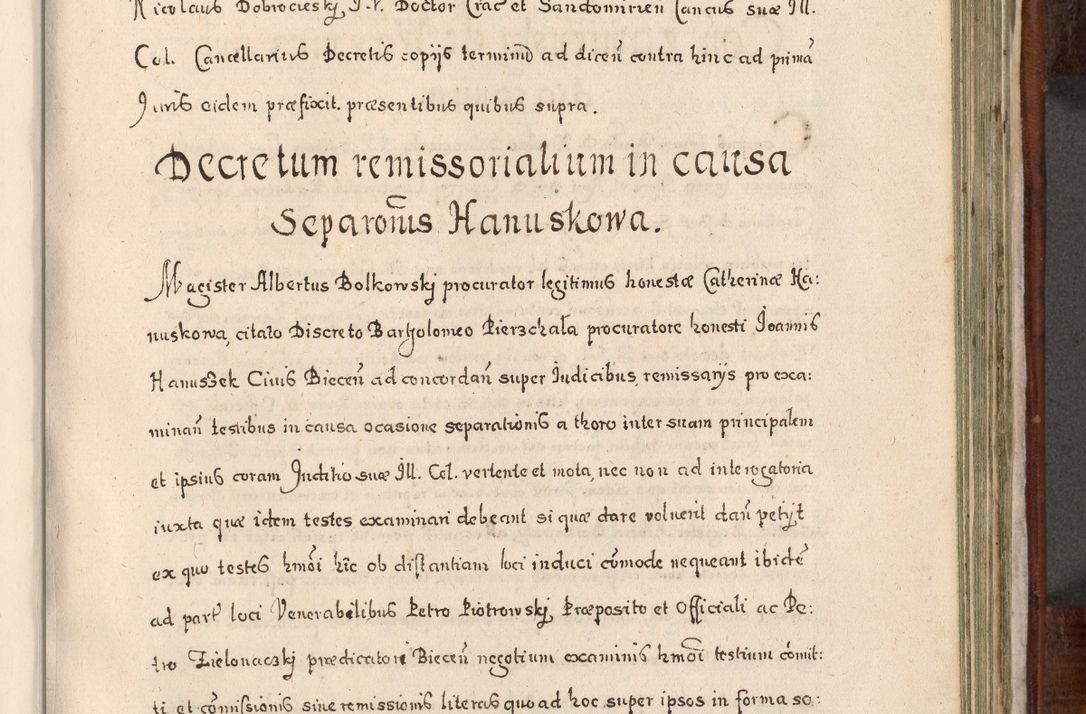 Nicolaus Dobrocieskj, J. V. Doctor Crac et Sandomirien Cancus suæ Ill.
Col. Cancellarius Decretis copijs terminũ ad dicen̄ contra hinc ad primā
Juris eidem præfixit. præsentibus quibus supra.
Decretum remissorialium in causa
Separōnis Hanuskowa.
Magister Albertus Bolkowskj procurator legitimus honestæ Catherinæ Ha:
nuskowa, citato Discreto Bartholomeo Pierzchała procuratore honesti Joannis
Hanuszek Civis Biecen̄ ad concordan̄ super Iudicibus remissarijs pro exa:
minan̄ testibus in causa ocasione separationis a thoro inter suam principalem
et ipsius coram Judicio suæ Ill. Cel. vertente et mota, nec non ad interogatoria
iuxta quæ idem testes examinari debeant si quæ dare voluerit dan̄ petijt
ex quo testes hmōi hic ob distantiam loci induci cōmode nequeant ibidē
ad part loci Venerabilibus Petro Piotrowskj, Præposito et Officiali ac Pe:
tro Zielonaczkj prædicatori Biecen̄ negotium examinis hmōi testium cōmit:
ti et cōmissionis sive remissionis literas quo ad hoc super ipsos in forma so: